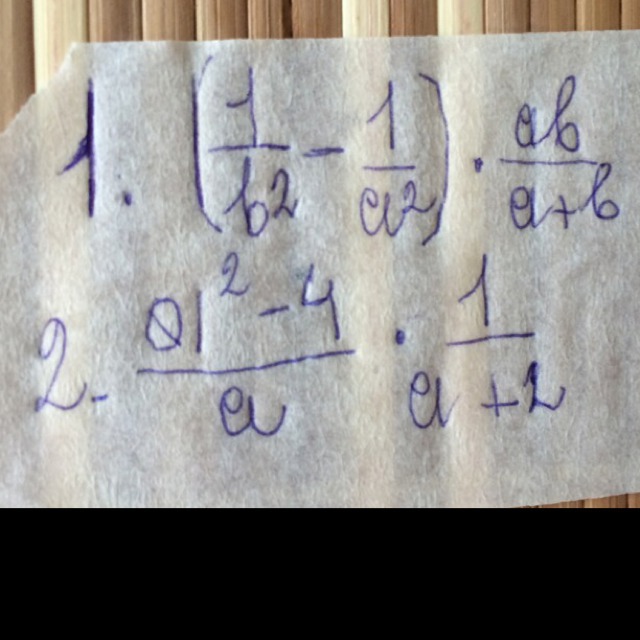 1. (1/b² - 1/a²) · ab/a+b
2. a²-4/a · 1/a+2